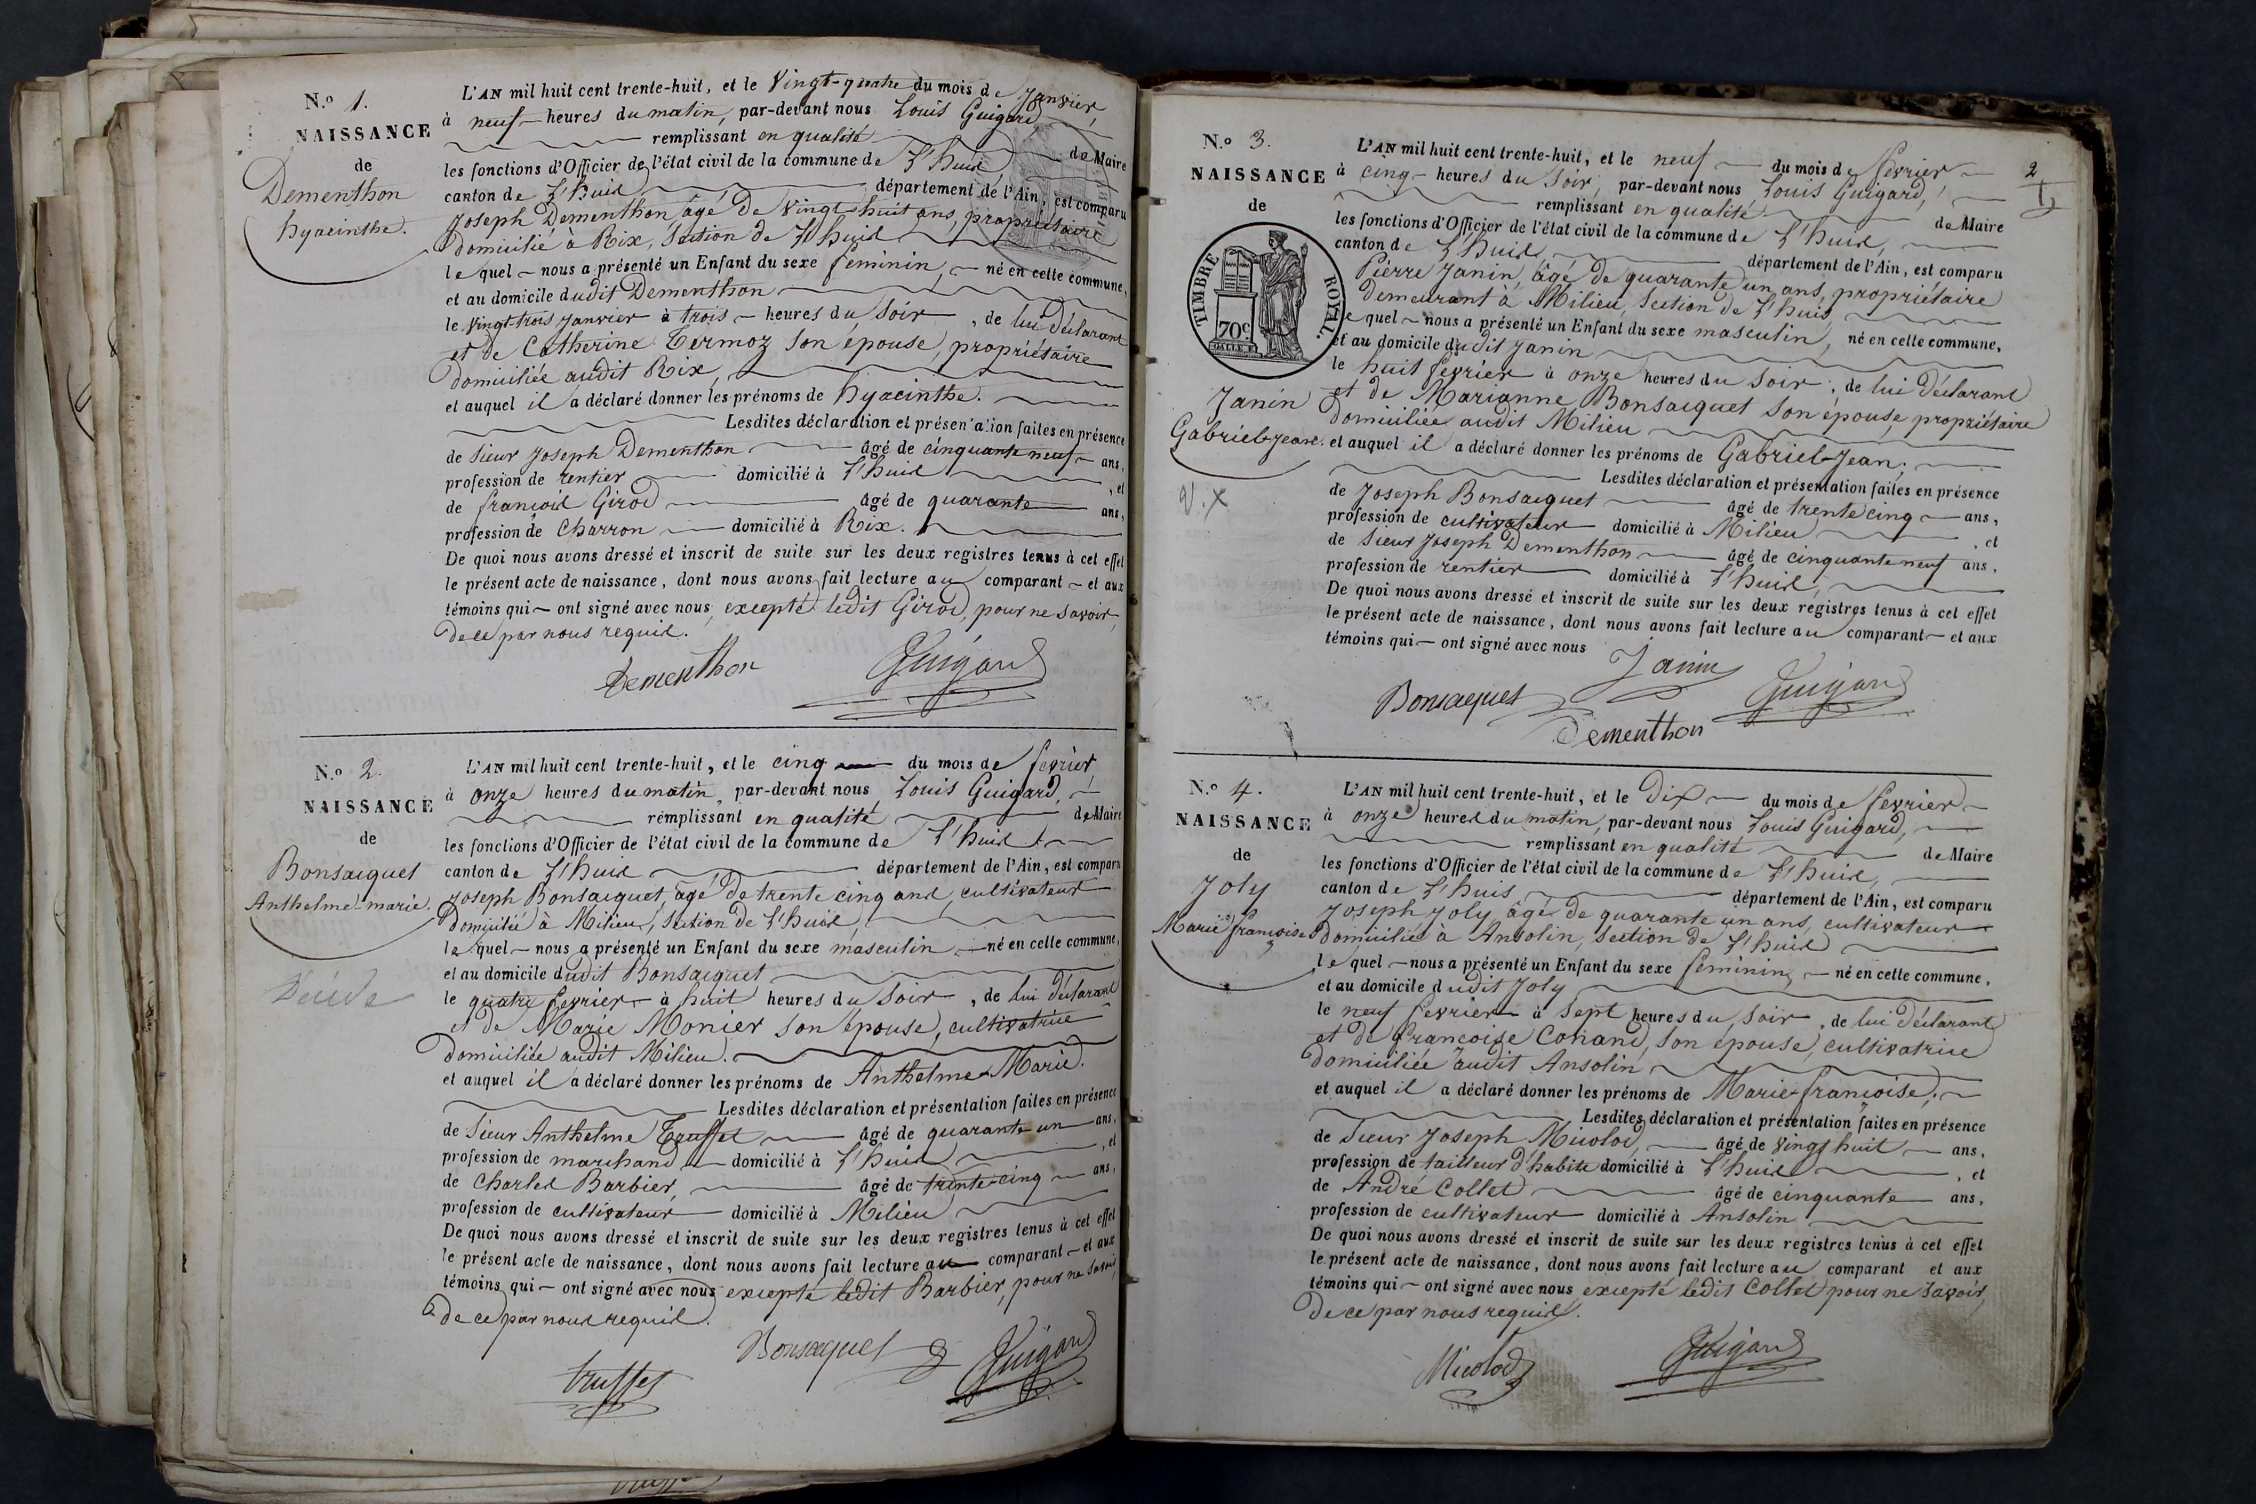 N.o 1.
NAISSANCE
de
Dementhon
hyacinthe.
L'AN mil huit cent trente-huit, et le Vingt-quatre du mois de Janvier,
à neuf heures du matin, par-devant nous Louis Guigard
remplissant en qualité de Maire
les fonctions d'Officier de l'état civil de la commune de L'huis
canton de L'huis département de l'Ain, est comparu
Joseph Dementhon âgé de vingt-huit ans, propriétaire
domicilié à Rix, Section de L'huis
lequel nous a présenté un Enfant du sexe féminin, né en cette commune,
et au domicile dudit Dementhon
le Vingt-trois Janvier à trois heures du Soir, de lui Déclarant
et de Catherine Termoz son épouse, propriétaire
domiciliée audit Rix,
et auquel il a déclaré donner les prénoms de hyacinthe.
Lesdites déclaration et présentation faites en présence
de Sieur Joseph Dementhon âgé de cinquante neuf ans,
profession de rentier domicilié à L'huis, et
de françois Girod âgé de quarante ans,
profession de Charron domicilié à Rix.
De quoi nous avons dressé et inscrit de suite sur les deux registres tenus à cet effet
le présent acte de naissance, dont nous avons fait lecture au comparant et aux
témoins qui ont signé avec nous, excepté ledit Girod, pour ne Savoir,
de ce par nous requis.
Dementhon Guigard
N.o 2.
NAISSANCE
de
Bonsacquet
Anthelme-marie.
Décédé
L'AN mil huit cent trente-huit, et le cinq du mois de février
à onze heures du matin, par-devant nous Louis Guigard,
remplissant en qualité de Maire
les fonctions d'Officier de l'état civil de la commune de L'huis
canton de L'huis département de l'Ain, est comparu
Joseph Bonsacquet, âgé de trente cinq ans, cultivateur
Domicilié à Milieu, Section de L'huis,
lequel nous a présenté un Enfant du sexe masculin, né en cette commune,
et au domicile dudit Bonsacquet,
le quatre février à huit heures du Soir, de lui déclarant
et de Marie Monier son épouse, cultivatrice
domiciliée audit Milieu.
et auquel il a déclaré donner les prénoms de Anthelme-Marie.
Lesdites déclaration et présentation faites en présence
de Sieur Anthelme Truffet âgé de quarante un ans,
profession de marchand domicilié à L'huis, et
de Charles Barbier, âgé de trente-cinq ans,
profession de cultivateur domicilié à Milieu
De quoi nous avons dressé et inscrit de suite sur les deux registres tenus à cet effet
le présent acte de naissance, dont nous avons fait lecture au comparant et aux
témoins qui ont signé avec nous excepté ledit Barbier, pour ne Savoir,
de ce par nous requis.
Bonsacquet Guigard
truffet
2
N.o 3.
NAISSANCE
de
TIMBRE ROYAL.
70c
Janin
Gabriel-Jean.
V. X
L'AN mil huit cent trente-huit, et le neuf du mois de février
à cinq heures du Soir, par-devant nous Louis Guigard,
remplissant en qualité de Maire
les fonctions d'Officier de l'état civil de la commune de L'huis,
canton de L'huis, département de l'Ain, est comparu
Pierre Janin, âgé de quarante un ans, propriétaire
demeurant à Milieu, Section de L'huis,
lequel nous a présenté un Enfant du sexe masculin, né en cette commune,
et au domicile dudit Janin
le huit février à onze heures du Soir, de lui déclarant
et de Marianne Bonsacquet son épouse, propriétaire
domiciliée audit Milieu
et auquel il a déclaré donner les prénoms de Gabriel-Jean.
Lesdites déclaration et présentation faites en présence
de Joseph Bonsacquet âgé de trente cinq ans,
profession de cultivateur domicilié à Milieu, et
de Sieur Joseph Dementhon âgé de cinquante neuf ans,
profession de rentier domicilié à L'huis,
De quoi nous avons dressé et inscrit de suite sur les deux registres tenus à cet effet
le présent acte de naissance, dont nous avons fait lecture au comparant et aux
témoins qui ont signé avec nous
Janin
Bonsacquet Guigard
Dementhon
N.o 4.
NAISSANCE
de
Joly
Marie françoise
L'AN mil huit cent trente-huit, et le Dix du mois de février
à onze heures du matin, par-devant nous Louis Guigard,
remplissant en qualité de Maire
les fonctions d'Officier de l'état civil de la commune de L'huis,
canton de L'huis département de l'Ain, est comparu
Joseph Joly, âgé de quarante un ans, cultivateur
domicilié à Ansolin, Section de L'huis
lequel nous a présenté un Enfant du sexe féminin, né en cette commune,
et au domicile dudit Joly
le neuf février à Sept heures du Soir, de lui déclarant
et de françoise Conand, son épouse, cultivatrice
domiciliée audit Ansolin
et auquel il a déclaré donner les prénoms de Marie-françoise.
Lesdites déclaration et présentation faites en présence
de Sieur Joseph Micolod, âgé de vingt huit ans,
profession de tailleur d'habits domicilié à L'huis, et
de André Collet âgé de cinquante ans,
profession de cultivateur domicilié à Ansolin
De quoi nous avons dressé et inscrit de suite sur les deux registres tenus à cet effet
le présent acte de naissance, dont nous avons fait lecture au comparant et aux
témoins qui ont signé avec nous, excepté ledit Collet pour ne Savoir,
De ce par nous requis.
Micolod Guigard